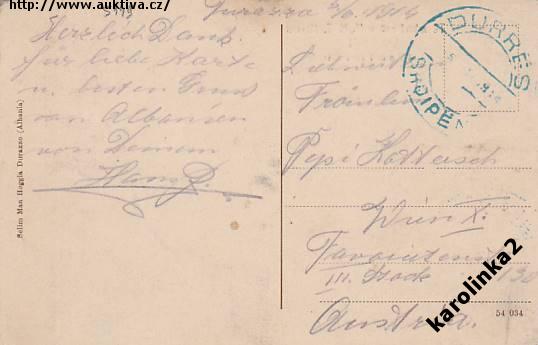 http://www.auktiva.cz/
Durazzo 1914
Herzlich Dank
für liebe Karte
u. besten Gruss
von Albanien
von Deinem
Hans
Selim Man Hoggia Durazzo (Albania)
DURRËS
SHQIPEN
Fräulein
Pepi Kottasch
Wien X.
Favoritenst
III. Stock 130
Austria.
54 034
karolinka2